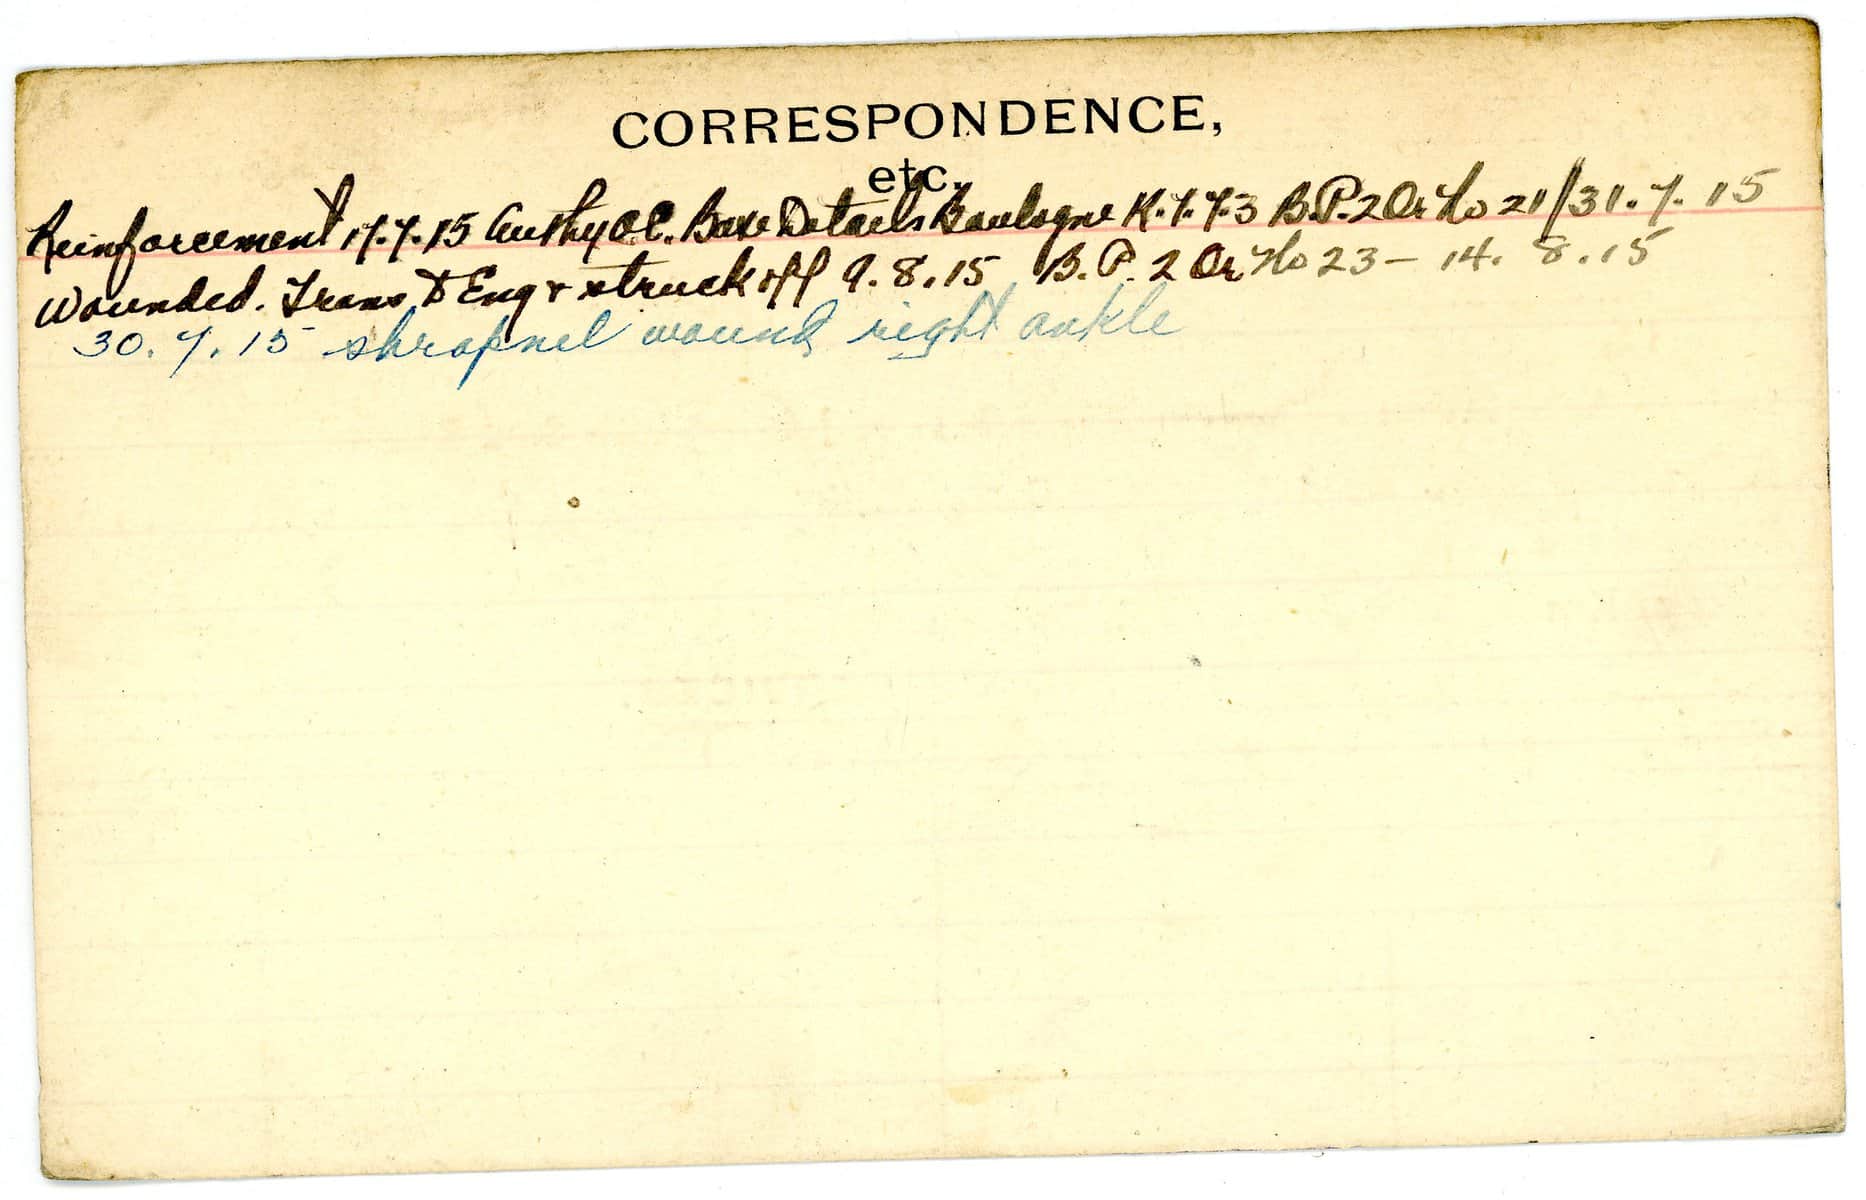 CORRESPONDENCE,
etc.
Reinforcement 17.7.15 Authy O C. Base Details Boulogne K.7.7.3 B.P. 2 Or No 21/31.7.15
Wounded. Trans to Eng & struck off 9.8.15 B.P. 2 Or No 23 - 14.8.15
30.7.15 shrapnel wound right ankle